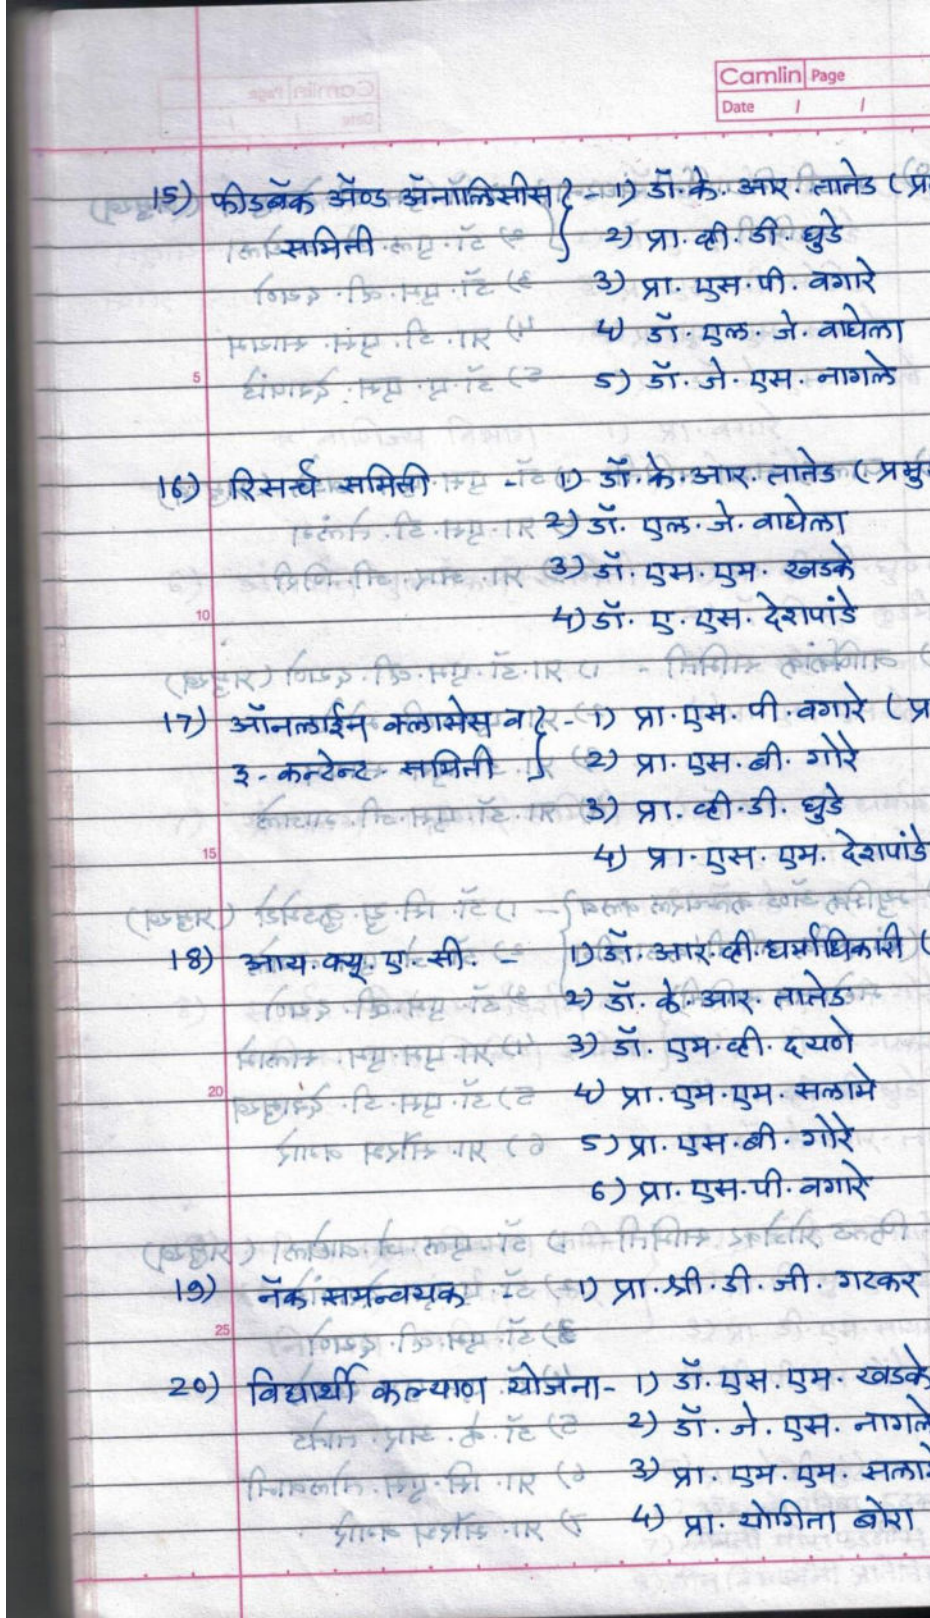 Camlin Page
Date / /
15) फीडबॅक अ‍ॅण्ड अ‍ॅनॉलिसीस } - 1) डॉ. के. आर. तातेड (प्र
समिती } 2) प्रा. व्ही. डी. घुडे
3) प्रा. एस. पी. वगारे
4) डॉ. एल. जे. वाघेला
5
5) डॉ. जे. एस. नागले
16) रिसर्च समिती - 1) डॉ. के. आर. तातेड (प्रमु
2) डॉ. एल. जे. वाघेला
3) डॉ. एस. एम. खडके
10
4) डॉ. ए. एस. देशपांडे
17) ऑनलाईन क्लासेस व } - 1) प्रा. एस. पी. वगारे (प्र
इ - कन्टेन्ट समिती } 2) प्रा. एस. बी. गोरे
3) प्रा. व्ही. डी. घुडे
15
4) प्रा. एस. एम. देशपांडे
18) आय. क्यू. ए. सी. - 1) डॉ. आर. व्ही. धर्माधिकारी (
2) डॉ. के. आर. तातेड
3) डॉ. एम. व्ही. दयणे
20
4) प्रा. एम. एम. सलामे
5) प्रा. एस. बी. गोरे
6) प्रा. एस. पी. वगारे
19) नॅक समन्वयक 1) प्रा. श्री. डी. जी. गटकर
25
20) विद्यार्थी कल्याण योजना - 1) डॉ. एस. एम. खडके
2) डॉ. जे. एस. नागले
3) प्रा. एम. एम. सलामे
4) प्रा. योगिता बोरा